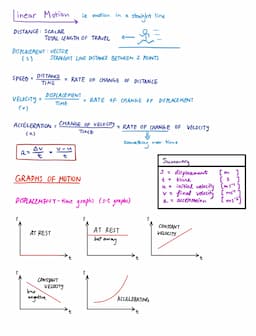 Linear Motion ie motion in a straight line
DISTANCE: SCALAR
TOTAL LENGTH OF TRAVEL
DISPLACEMENT: VECTOR
(s) STRAIGHT LINE DISTANCE BETWEEN 2 POINTS
SPEED = DISTANCE/TIME = RATE OF CHANGE OF DISTANCE
VELOCITY = DISPLACEMENT/TIME = RATE OF CHANGE OF DISPLACEMENT
(v)
ACCELERATION = CHANGE OF VELOCITY/TIME = RATE OF CHANGE OF VELOCITY
(a)
something over time
a = Δv/t = v-u/t
Summary
S = displacement [m]
t = time [s]
u = initial velocity [ms⁻¹]
v = final velocity [ms⁻¹]
a = acceleration [ms⁻²]
GRAPHS OF MOTION
DISPLACEMENT-time graphs (s-t graphs)
AT REST
t
AT REST
but away
t
CONSTANT
VELOCITY
t
CONSTANT
VELOCITY
but
negative
t
ACCELERATING
t